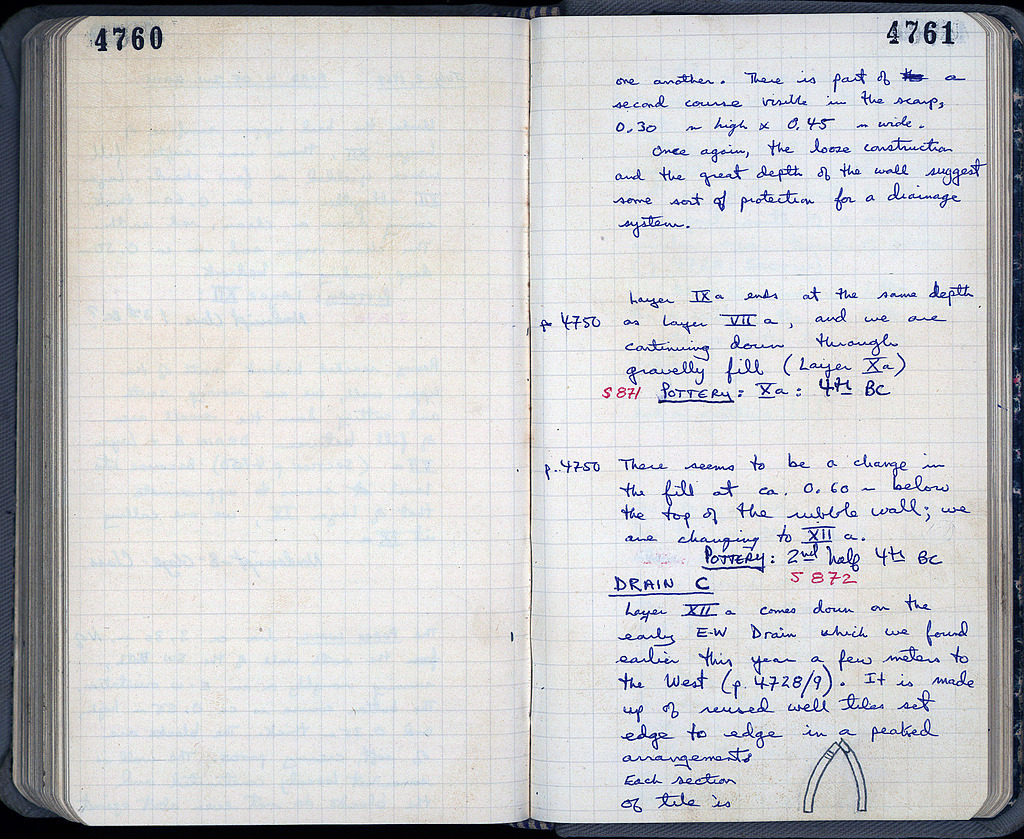 4760
4761
one another. There is part of a
second course visible in the scarp,
0.30 m high x 0.45 m wide.
Once again, the loose construction
and the great depth of the wall suggest
some sort of protection for a drainage
system.
Layer IXa ends at the same depth
p 4750 as Layer VII a, and we are
continuing down through
gravelly fill (Layer Xa)
S 871 POTTERY: Xa: 4th BC
p. 4750 There seems to be a change in
the fill at ca. 0.60 m below
the top of the rubble wall; we
are changing to XII a.
POTTERY: 2nd half 4th BC
S 872
DRAIN C
Layer XII a comes down on the
early E-W Drain which we found
earlier this year a few meters to
the West (p. 4728/9). It is made
up of reused well tiles set
edge to edge in a peaked
arrangement:
Each section
of tile is